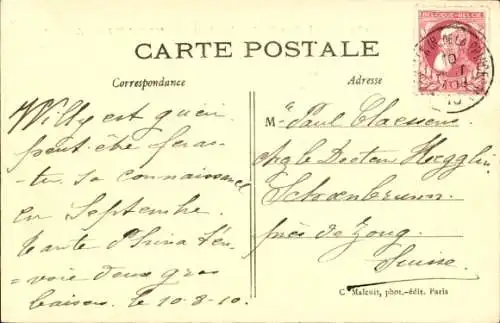 BELGIQUE-BELGIË
CARTE POSTALE
Correspondance
Adresse
Willy est guéri
peut-être feras-
tu sa connaissance
en Septembre.
Tante t'en-
voie deux gros
baisers. le 10-8-10.
Mr Paul Claessens
chez le Docteur Hegglin
Schoenbrunn
près de Zoug
Suisse
C. Malcuit, phot.-édit. Paris